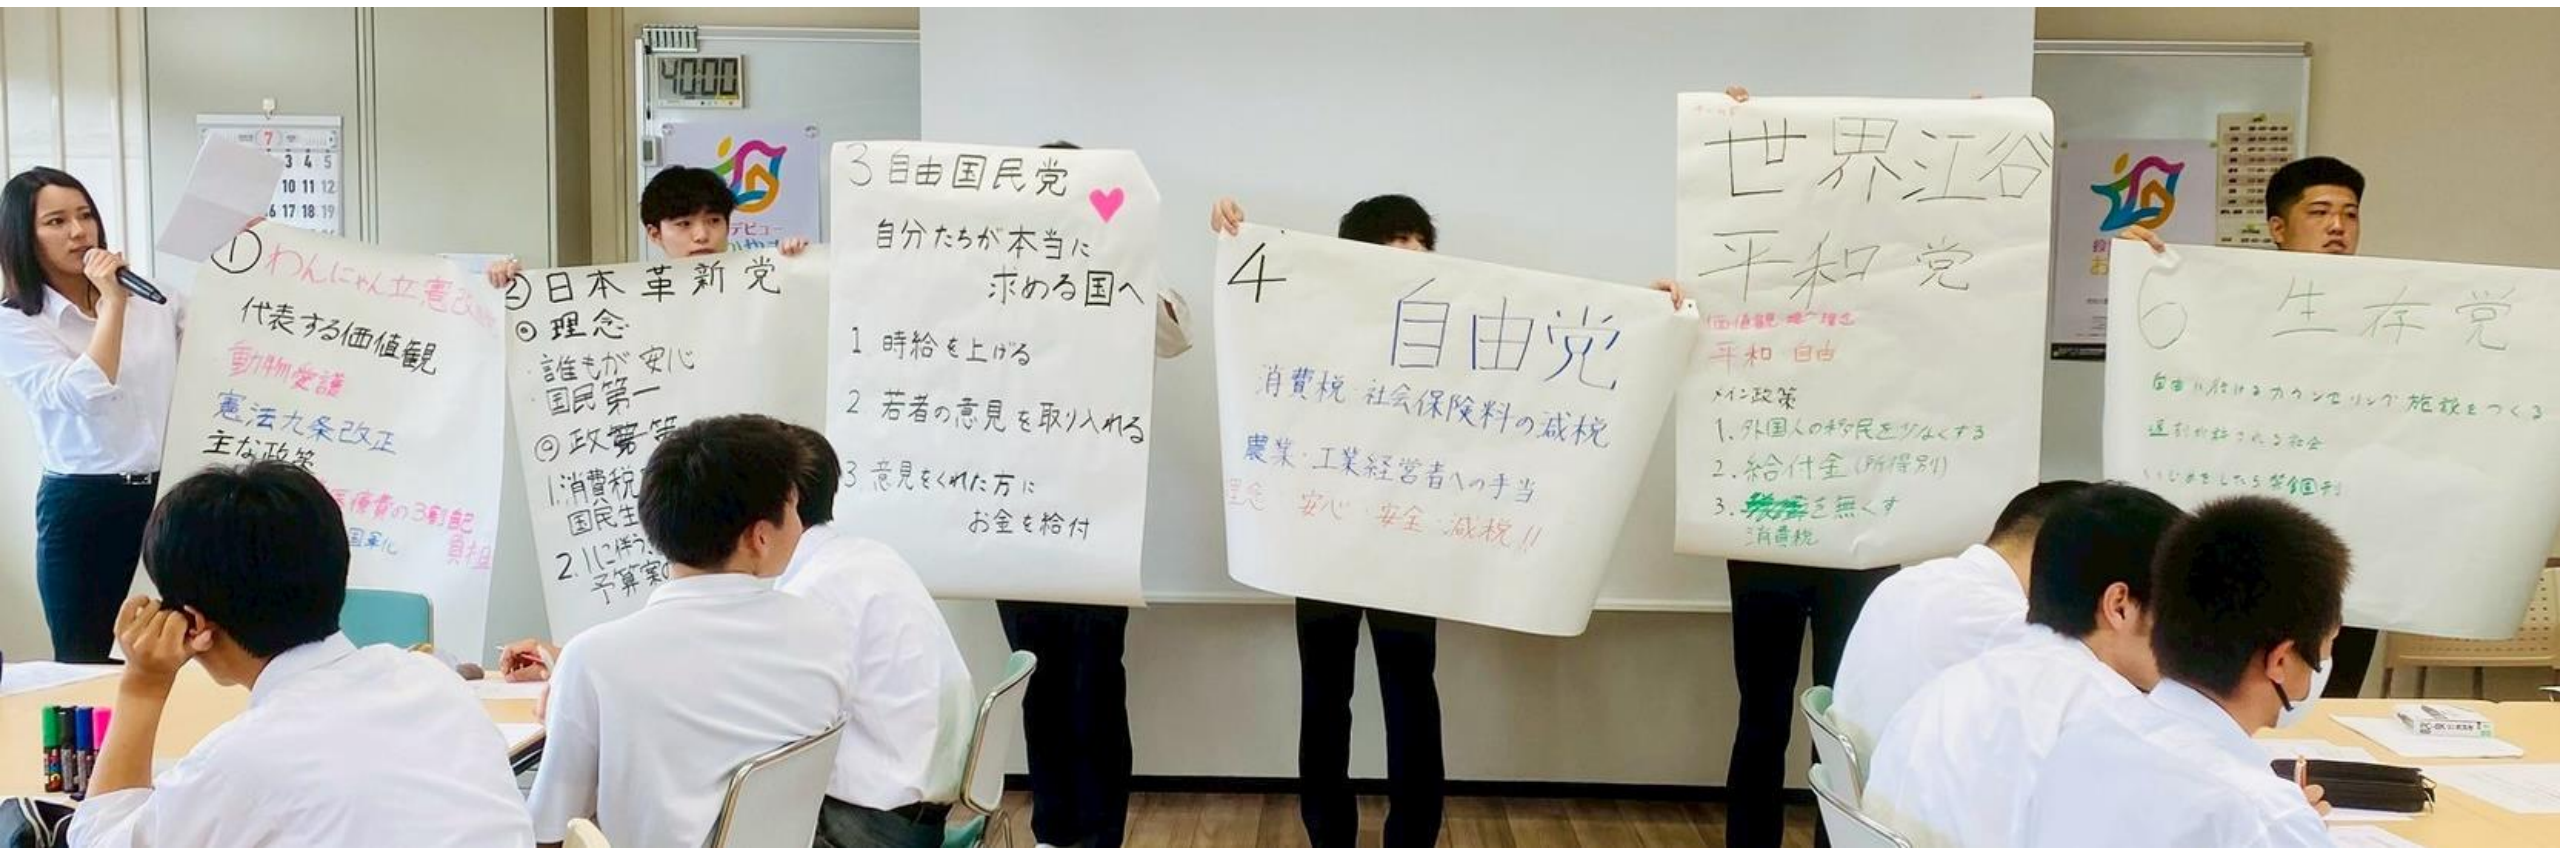 7
3 4 5
10 11 12
16 17 18 19
40:00
デビュー
①わんにゃん立憲改
代表する価値観
動物愛護
憲法九条改正
主な政策
医療費の3割自己
負担
国営化
② 日本革新党
◎理念
・誰もが安心
・国民第一
◎政策
1.消費税
国民生
2.1に伴う
予算案
3 自由国民党
自分たちが本当に
求める国へ
1 時給を上げる
2 若者の意見を取り入れる
3 意見をくれた方に
お金を給付
4
自由党
消費税・社会保険料の減税
農業・工業経営者への手当
理念 安心・安全・減税!!
世界江谷
平和党
平和 自由
メイン政策
1.外国人の移民を少なくする
2.給付金(所得別)
3.を無くす
消費税
6 生存党
自由に行けるカウンセリング施設をつくる
遅刻が許される社会
いじめをしたら禁錮刑